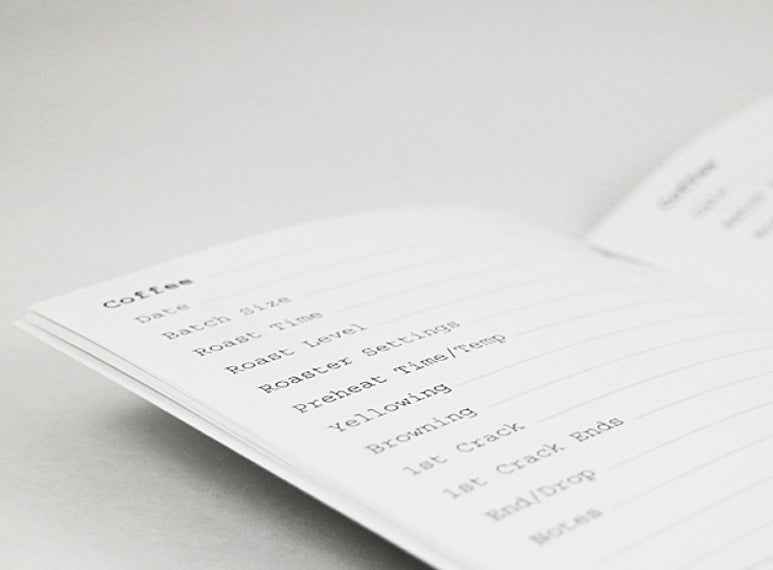 Coffee
Date
Batch Size
Roast Time
Roast Level
Roaster Settings
Preheat Time/Temp
Yellowing
Browning
1st Crack
1st Crack Ends
End/Drop
Notes